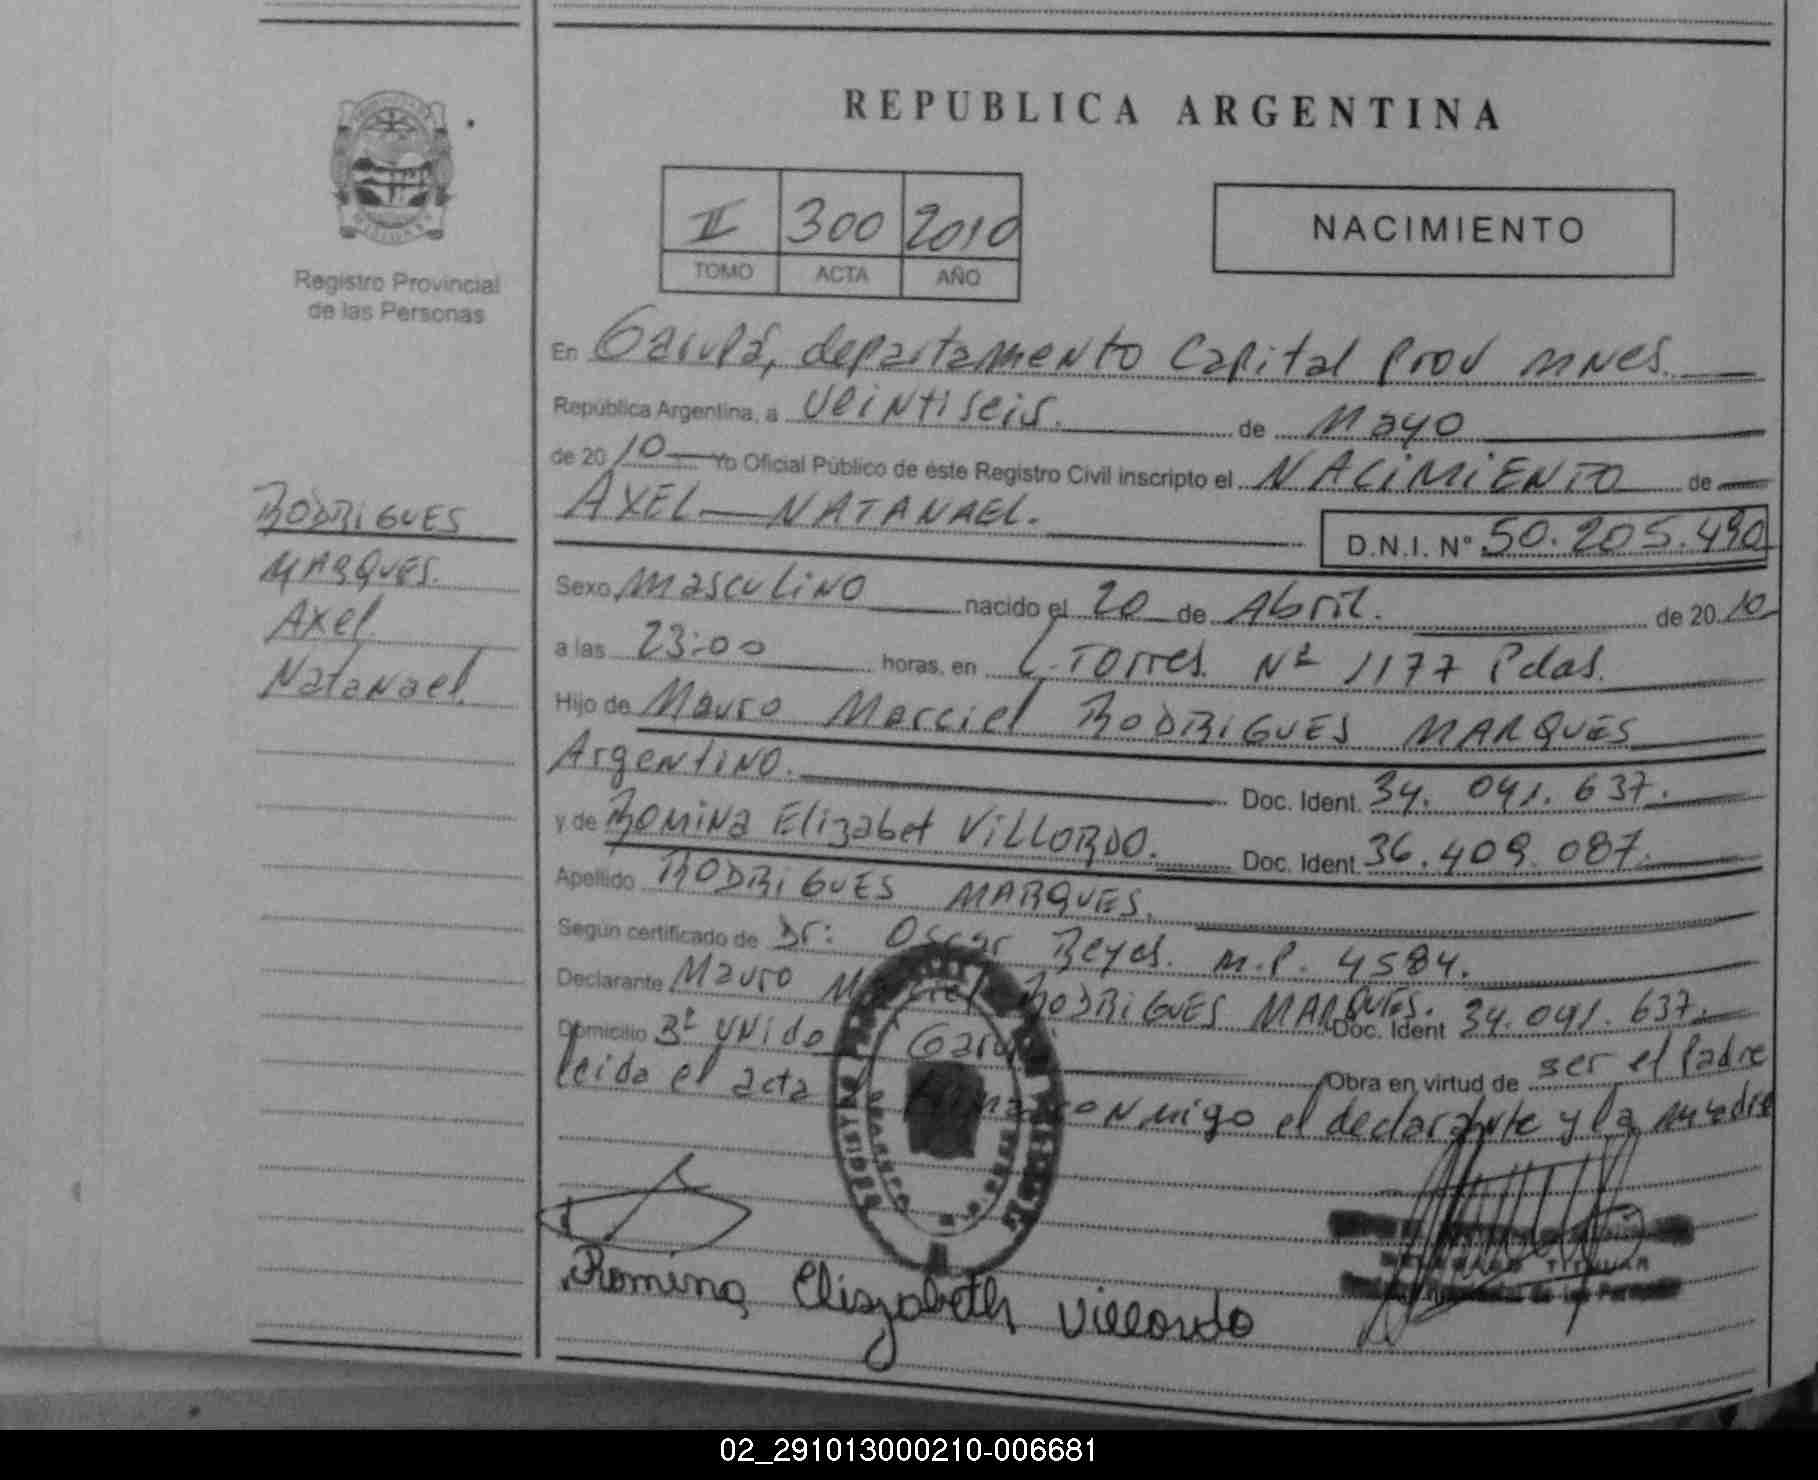 REPUBLICA ARGENTINA
Registro Provincial
de las Personas
II 300 2010
TOMO ACTA AÑO
NACIMIENTO
En Garupá, departamento Capital Prov mnes.
República Argentina, a Veintiseis. de Mayo
de 20 10 Yo Oficial Público de éste Registro Civil inscripto el NACIMIENTO de
AXEL NATANAEL.
D.N.I. N° 50.205.490
RODRIGUES
MARQUES.
Axel
Natanael.
Sexo masculino nacido el 20 de Abril. de 20 10
a las 23:00 horas, en L. Torres. Nº 1177 Pdas.
Hijo de Mauro Marciel RODRIGUES MARQUES
Argentino. Doc. Ident. 34. 041. 637.
y de ROMINA Elizabet VILLORDO. Doc. Ident. 36.409.087.
Apellido RODRIGUES MARQUES.
Según certificado de Dr: Oscar Reyes. M.P. 4584.
Declarante Mauro Marciel RODRIGUES MARQUES. Doc. Ident 34.041.637.
Domicilio Bº Unido Garupá Obra en virtud de ser el Padre
leida el acta firma conmigo el declarante y la madre
Romina Elizabeth Villordo
DELEGADO TITULAR
Registro Provincial de las Personas
02_291013000210-006681